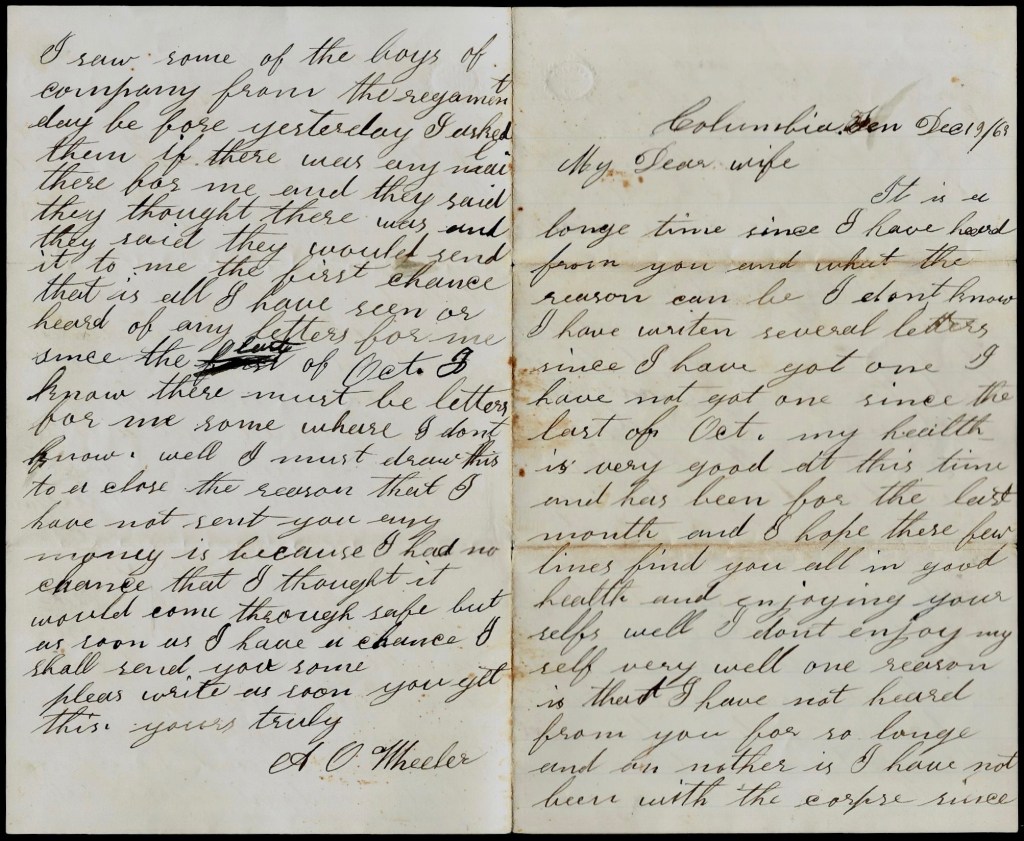 Columbia. Ten Dec 19/63
My Dear wife
It is a
longe time since I have heard
from you and what the
reason can be I dont know
I have writen several letters
since I have got one I
have not got one since the
last of Oct. my health
is very good at this time
and has been for the last
month and I hope these few
lines find you all in good
health and enjoying your
selfs well I dont enjoy my
self very well one reason
is that I have not heard
from you for so longe
and an nother is I have not
been with the corpse since
I saw some of the boys of
company from the regament
day be fore yesterday I asked
them if there was any mail
there for me and they said
they thought there was and
they said they would send
it to me the first chance
that is all I have seen or
heard of any letters for me
since the last of Oct. I
know there must be letters
for me some whare I dont
know. well I must draw this
to a close the reason that I
have not sent you any
money is because I had no
chance that I thought it
would come through safe but
as soon as I have a chance I
shall send you some
pleas write as soon you git
this. yours truly
A O. Wheeler